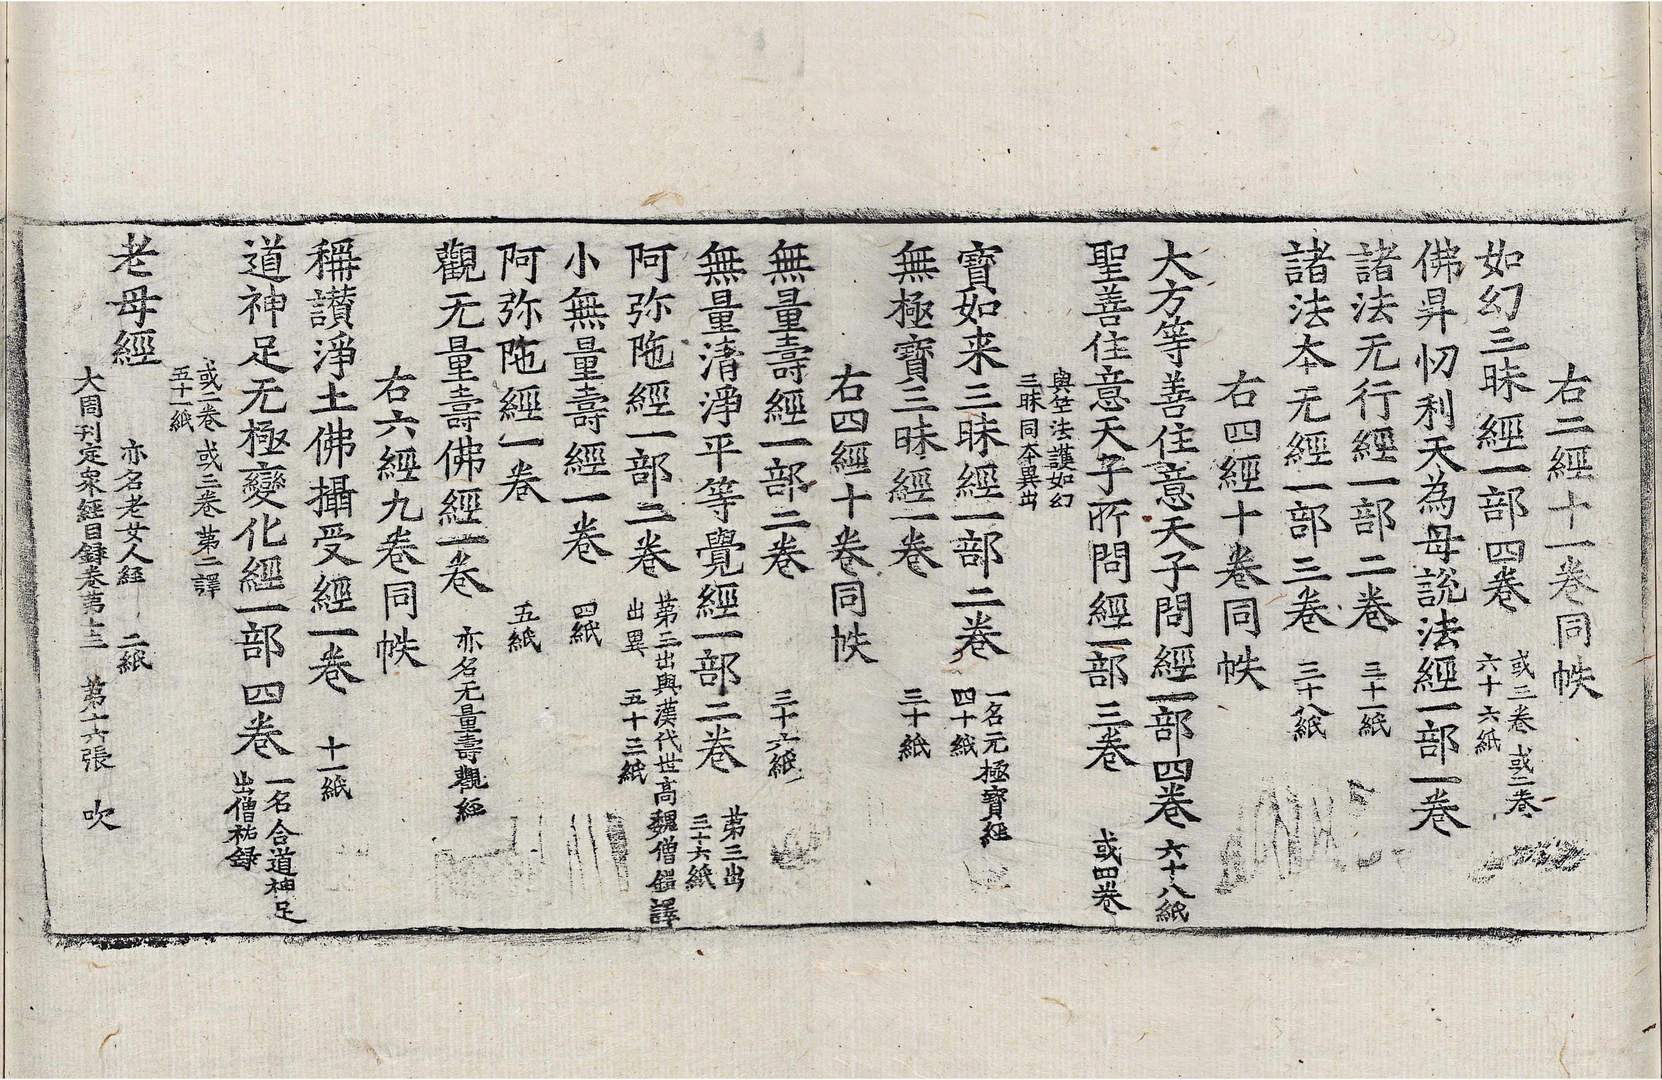 右二經十一卷同帙
如幻三昧經一部四卷 或三卷 或二卷 六十六紙
佛昇忉利天為母說法經一部一卷
諸法无行經一部二卷 三十一紙
諸法本无經一部三卷 三十八紙
右四經十卷同帙
大方等善住意天子問經一部四卷 六十八紙
聖善住意天子所問經一部三卷 或四卷
與竺法護如幻三昧同本異出
寶如来三昧經一部二卷 一名无極寶經 四十紙
無極寶三昧經一卷 三十紙
右四經十卷同帙
無量壽經一部二卷 三十六紙
無量清淨平等覺經一部二卷 第三出 三十六紙
阿弥陁經一部二卷 第三出與漢代世高魏僧鎧譯出異 五十三紙
小無量壽經一卷 四紙
阿弥陁經一卷 五紙
觀无量壽佛經一卷 亦名无量壽觀經
右六經九卷同帙
稱讃淨土佛攝受經一卷 十一紙
道神足无極變化經一部四卷 一名合道神足 出僧祐録
或二卷 或三卷 第二譯 五十一紙
老母經 亦名老女人經 二紙
大周刊定衆經目録卷第十三 第六張 吹